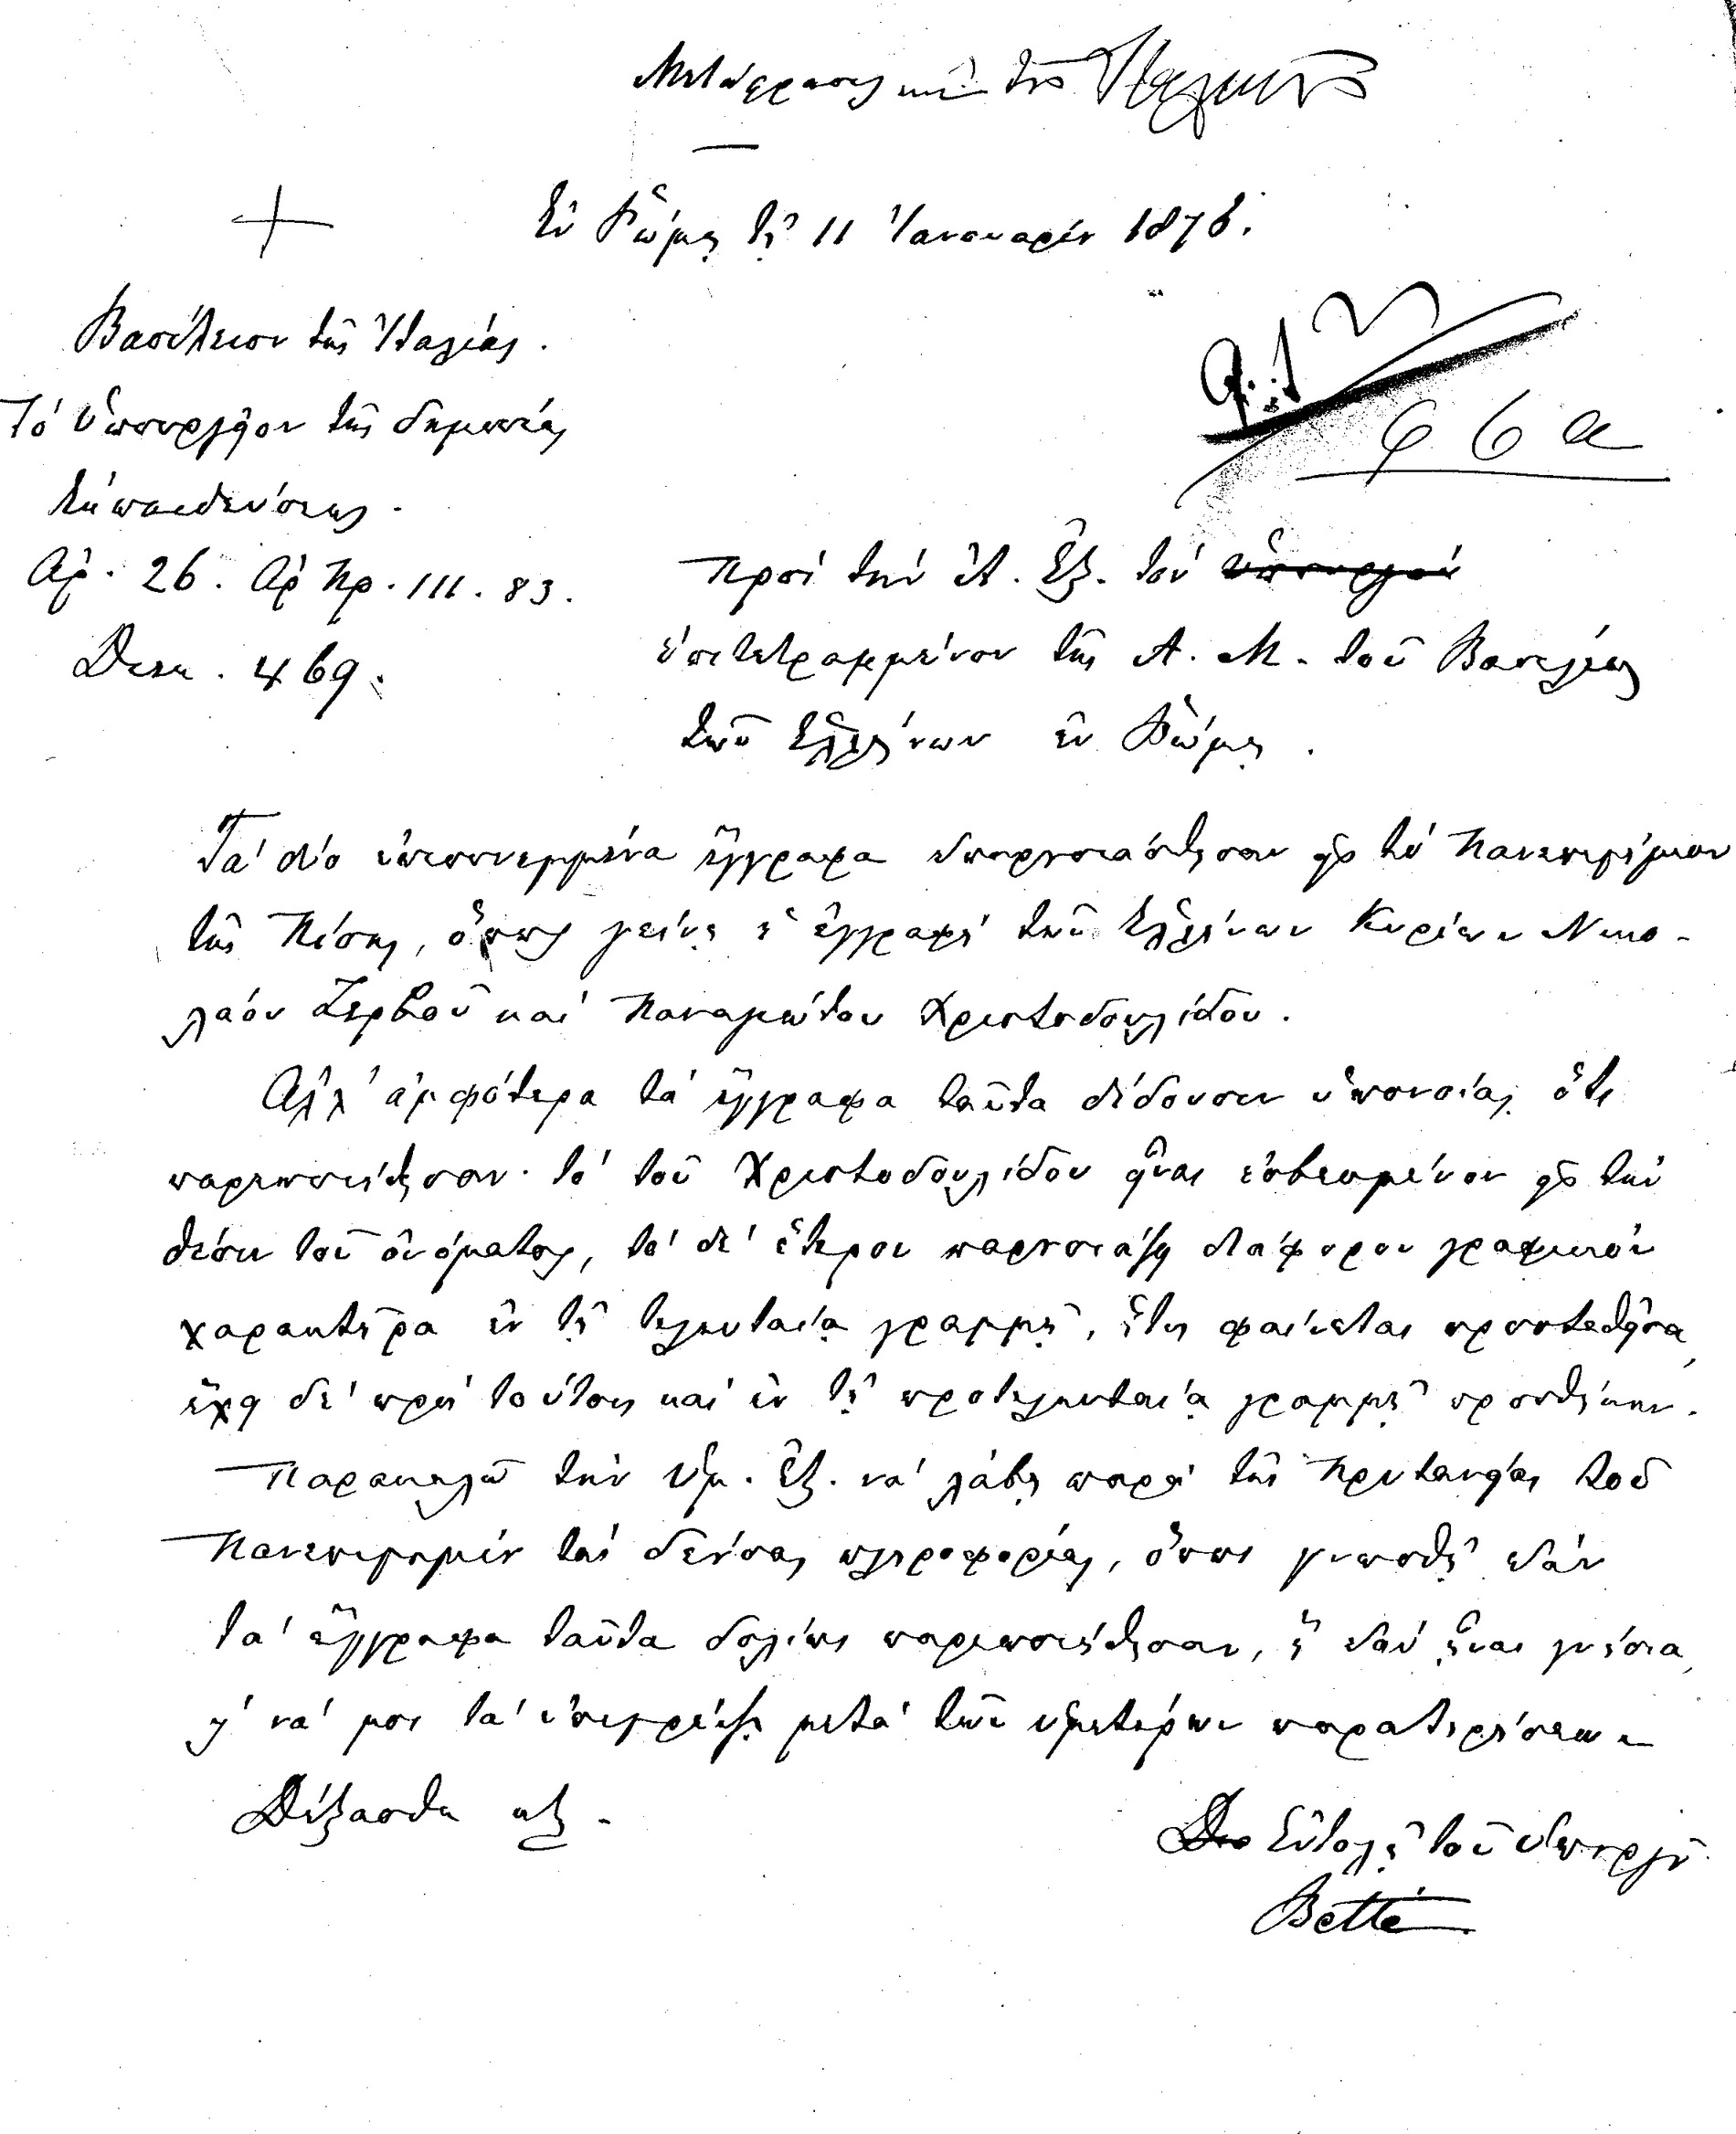 Μετάφρασις ἐκ τῆς Ἰταλικῆς
Ἐν Ῥώμῃ τῇ 11 Ἰανουαρίου 1876.
Βασίλειον τῆς Ἰταλίας.
Τὸ Ὑπουργεῖον τῆς δημοσίας
ἐκπαιδεύσεως.
Ἀρ. 26. Ἀρ Πρ. 111. 83.
Διεκ. 469.
φ 6 α
Πρὸς τὴν Α. Ἐξ. τὸν ὑπουργὸν
ἐπιτετραμμένον τῆς Α. Μ. τοῦ Βασιλέως
τῶν Ἑλλήνων ἐν Ῥώμῃ.
Τὰ δύο ἐπισυνημμένα ἔγγραφα ἐπαρουσιάσθησαν εἰς τὸ Πανεπιστήμιον
τῆς Πίσης, ὅπως γείνῃ ἡ ἐγγραφὴ τῶν Ἑλλήνων Κυρίων Νικο-
λάου Ζερβοῦ καὶ Παναγιώτου Χριστοδουλίδου.
Ἀλλ' ἀμφότερα τὰ ἔγγραφα ταῦτα δίδουσιν ὑπονοίας ὅτι
παρεποιήθησαν· τὸ τοῦ Χριστοδουλίδου εἶναι ἐσβεσμένον εἰς τὴν
θέσιν τοῦ ὀνόματος, τὸ δὲ ἕτερον παρουσιάζει διάφορον γραφικὸν
χαρακτῆρα ἐν τῇ τελευταίᾳ γραμμῇ, ἥτις φαίνεται προστεθεῖσα,
ἔχει δὲ πρὸς τούτοις καὶ ἐν τῇ προτελευταίᾳ γραμμῇ προσθήκην.
Παρακαλῶ τὴν Ὑμ. Ἐξ. νὰ λάβῃ παρὰ τῆς Πρυτανείας τοῦ
Πανεπιστημίου τὰς δεούσας πληροφορίας, ὅπως γνωσθῇ ἐὰν
τὰ ἔγγραφα ταῦτα δολίως παρεποιήθησαν, ἢ ἐὰν ἦναι γνήσια,
ἢ νὰ μοι τὰ ἐπιστρέψῃ μετὰ τῶν ὑμετέρων παρατηρήσεων
Δέξασθε κλ.
Ἐντολῇ τοῦ Ὑπουργοῦ
Betté